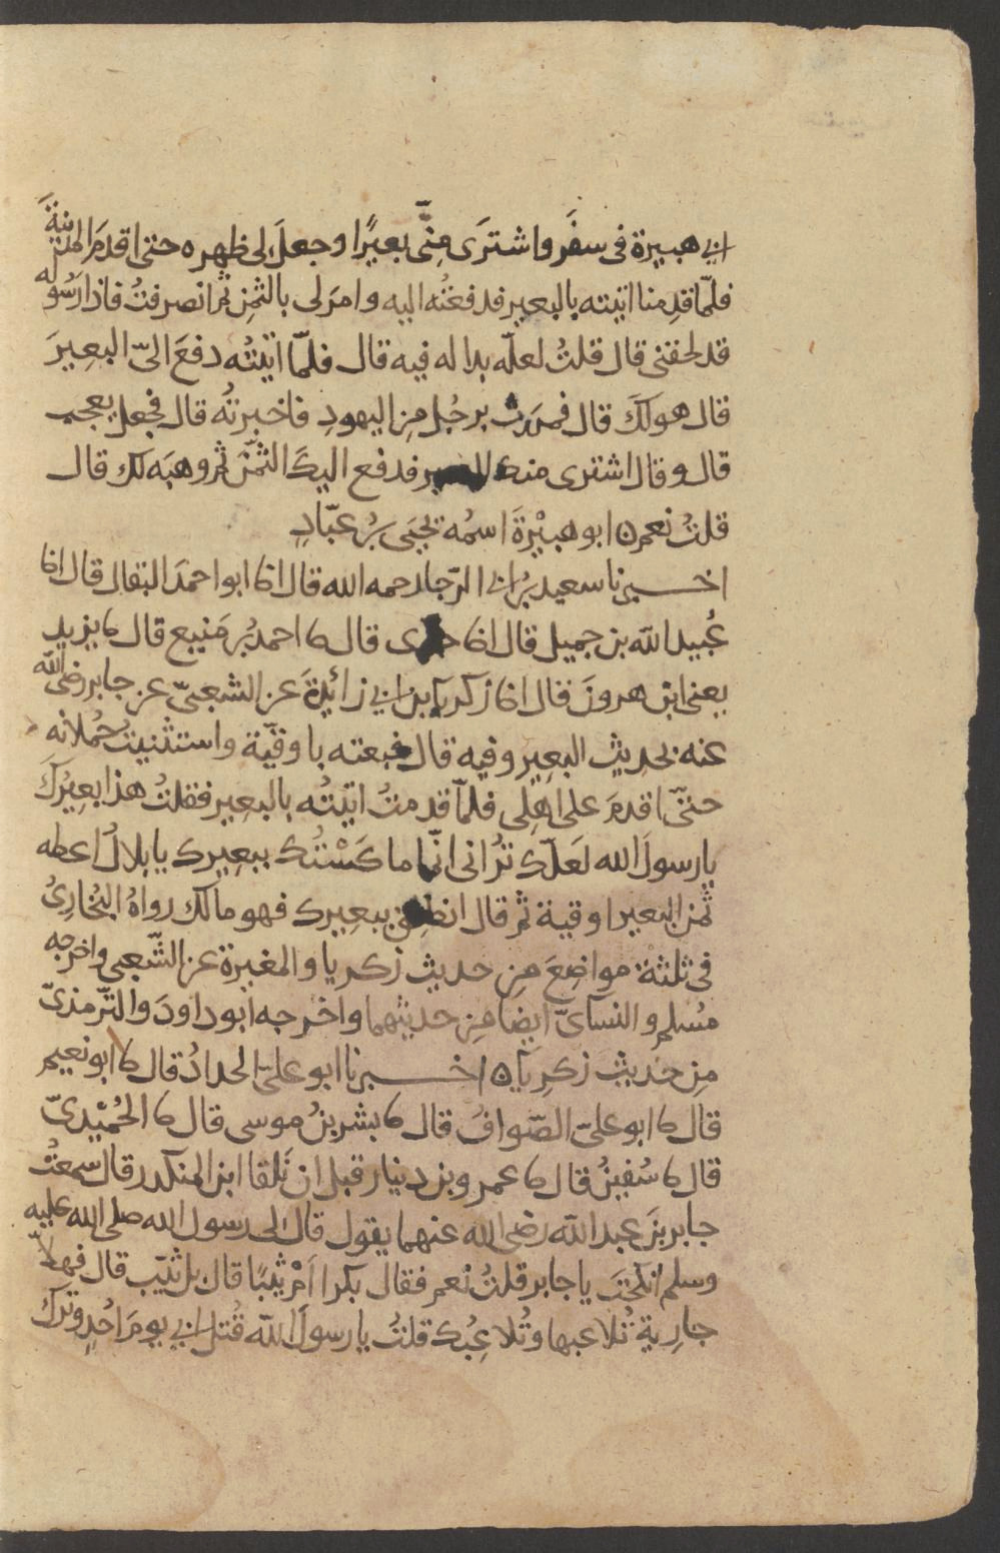 ابي هبيرة في سفَر واشترَى مِنّي بعيرًا وجعلَ لي ظهره حتى اقدمَ المدينةَ
فلمّا قدِمنا اتيته بالبعير فدفعتُه اليه وامرَ لي بالثمنِ ثم انصرفتُ فاذا رسُوله
قد لحقني قال قلتُ لعلّه بدا له فيه قال فلمّا اتيتُه دفعَ اليّ البعِيرَ
قال هو لكَ قال فمررت برجُل مِن اليهودِ فاخبرتُه قال فجعل يعجب
قال وقال اشترى منك البعير فدفع اليكَ الثمنَ ثم وهبَه لك قال
قلتُ نعم ه ابو هبيْرةَ اسمُه يحيَى بنُ عبّادٍ
اخبرنا سعيد بنُ ابي الرّجا رحمه الله قال انا ابو احمدَ البقال قال انا
عُبيد الله بن جميل قال انا جدي قال نا احمد بنُ مَنيع قال نا يزيد
يعني ابن هرونَ قال انا زكريا بن ابي زائدةَ عن الشعبيّ عن جابر رضي الله
عنه بحديث البعِير وفيه قال فبعته باوقيّة واستثنيتُ حُملانه
حتىّ اقدمَ على اهلِي فلمّا قدمتُ اتيْتُه بالبعِير فقلتُ هذا بعِيرُكَ
يا رسولَ الله لعَلّك تُراني انّما ماكَسْتُك ببعِيرِك يا بلالُ اعطه
ثمن البعير اوقية ثم قال انطلق ببعِيرِك فهو مالك رواهُ البُخارِيُ
في ثلثة مواضِعَ مِن حديث زكريا والمغيرة عن الشّعبي واخرجه
مُسلم والنسائيّ ايضا مِن حديثهما واخرجه ابو داودَ والترّمذيّ
مِن حَديث زكريا ه اخبرنا ابو عليّ الحدادُ قال نا ابو نعيم
قال نا ابو عليّ الصّوافُ قال نا بشر بنُ موسى قال نا الحُميْديّ
قال نا سُفينُ قال نا عمرو بن دينار قبل ان نَلقا ابن المنكدر قال سمعتُ
جابر بنَ عبد الله رضي الله عنهما يقول قال لي رسول الله صلى الله عليه
وسلم انكحتَ يا جابر قلتُ نعم فقال بكرا امْ ثيّبًا قال بل ثيّب قال فهلاّ
جارِية تُلاعبها وتُلاعِبُك قلتُ يا رسولَ الله قُتل ابي يومَ اُحُدٍ وترك